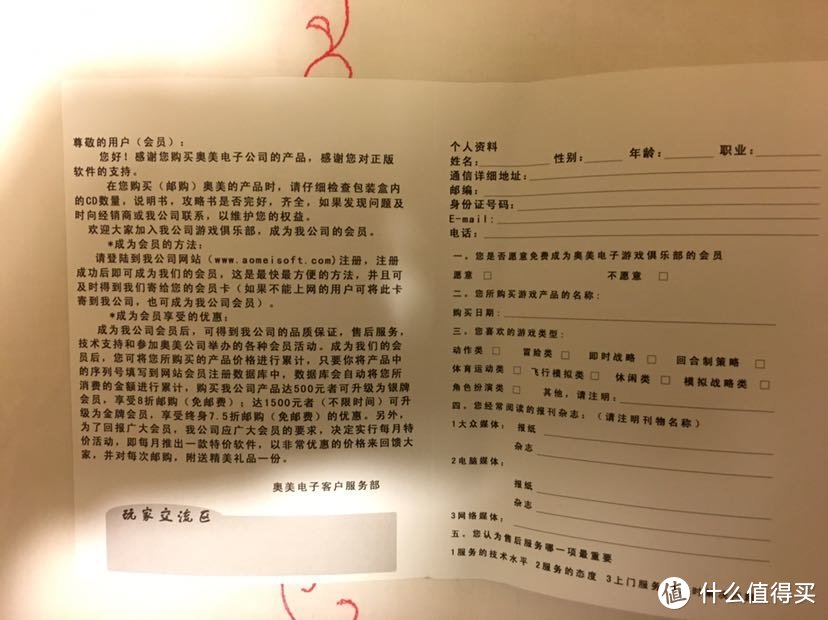 尊敬的用户（会员）：
您好！感谢您购买奥美电子公司的产品，感谢您对正版
软件的支持。
在您购买（邮购）奥美的产品时，请仔细检查包装盒内
的CD数量，说明书，攻略书是否完好，齐全，如果发现问题及
时向经销商或我公司联系，以维护您的权益。
欢迎大家加入我公司游戏俱乐部，成为我公司的会员。
*成为会员的方法：
请登陆到我公司网站（www.aomeisoft.com)注册，注册
成功后即可成为我们的会员，这是最快最方便的方法，并且可
及时得到我们寄给您的会员卡（如果不能上网的用户可将此卡
寄到我公司，也可成为我公司会员）。
*成为会员享受的优惠：
成为我公司会员后，可得到我公司的品质保证，售后服务，
技术支持和参加奥美公司举办的各种会员活动。成为我们的会
员后，您可将您所购买的产品价格进行累计，只要你将产品中
的序列号填写到网站会员注册数据库中，数据库会自动将您所
消费的金额进行累计，购买我公司产品达500元者可升级为银牌
会员，享受8折邮购（免邮费）；达1500元者（不限时间）可升
级为金牌会员，享受终身7.5折邮购（免邮费）的优惠。另外，
为了回报广大会员，我公司应广大会员的要求，决定实行每月特
价活动，即每月推出一款特价软件，以非常优惠的价格来回馈大
家，并对每次邮购，附送精美礼品一份。
奥美电子客户服务部
玩家交流区
个人资料
姓名： 性别： 年龄： 职业：
通信详细地址：
邮编：
身份证号码：
E-mail:
电话：
一、您是否愿意免费成为奥美电子游戏俱乐部的会员
愿意 □ 不愿意 □
二、您所购买游戏产品的名称：
购买日期：
三、您喜欢的游戏类型：
动作类 □ 冒险类 □ 即时战略 □ 回合制策略 □
体育运动类 □ 飞行模拟类 □ 休闲类 □ 模拟战略类 □
角色扮演类 □ 其他，请注明：
四、您经常阅读的报刊杂志：（请注明刊物名称）
1大众媒体： 报纸
杂志
2电脑媒体：
报纸
杂志
3网络媒体：
五、您认为售后服务哪一项最重要
1服务的技术水平 2服务的态度 3上门服务
值 什么值得买